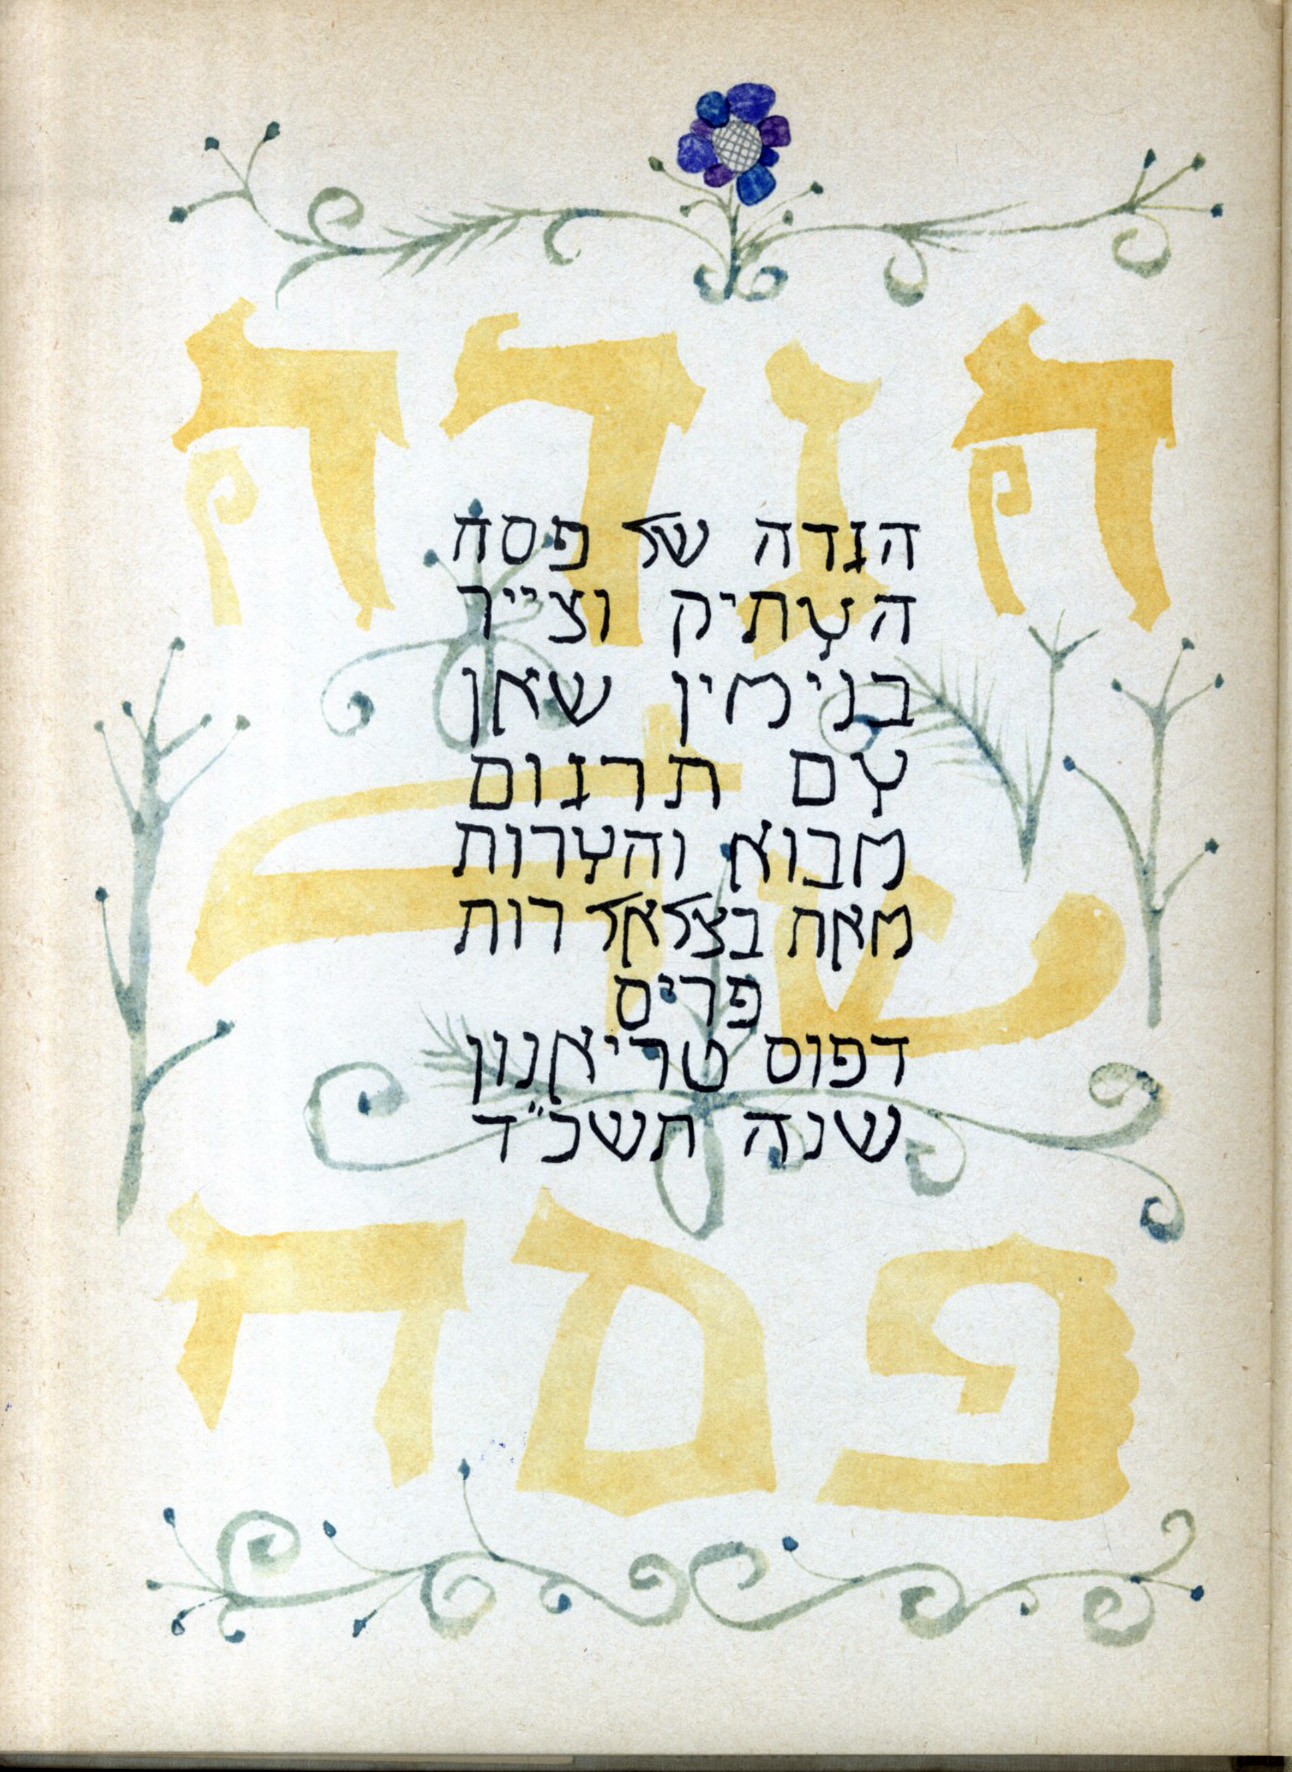 הגדה
של
פסח
הגדה של פסח
העתיק וצייר
בנימין שאן
עם תרגום
מבוא והערות
מאת בצלאל רות
פריס
דפוס טריאנון
שנה תשכ"ד